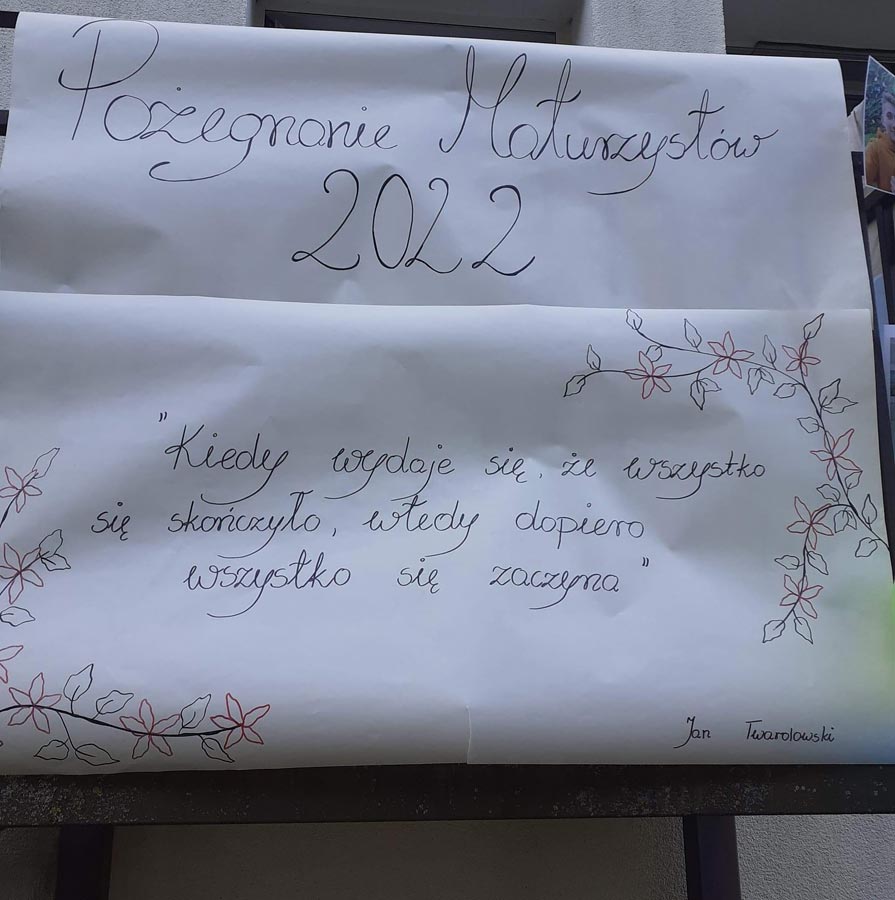 Pożegnanie Maturzystów
2022
"Kiedy wydaje się, że wszystko
się skończyło, wtedy dopiero
wszystko się zaczyna"
Jan Twarolowski